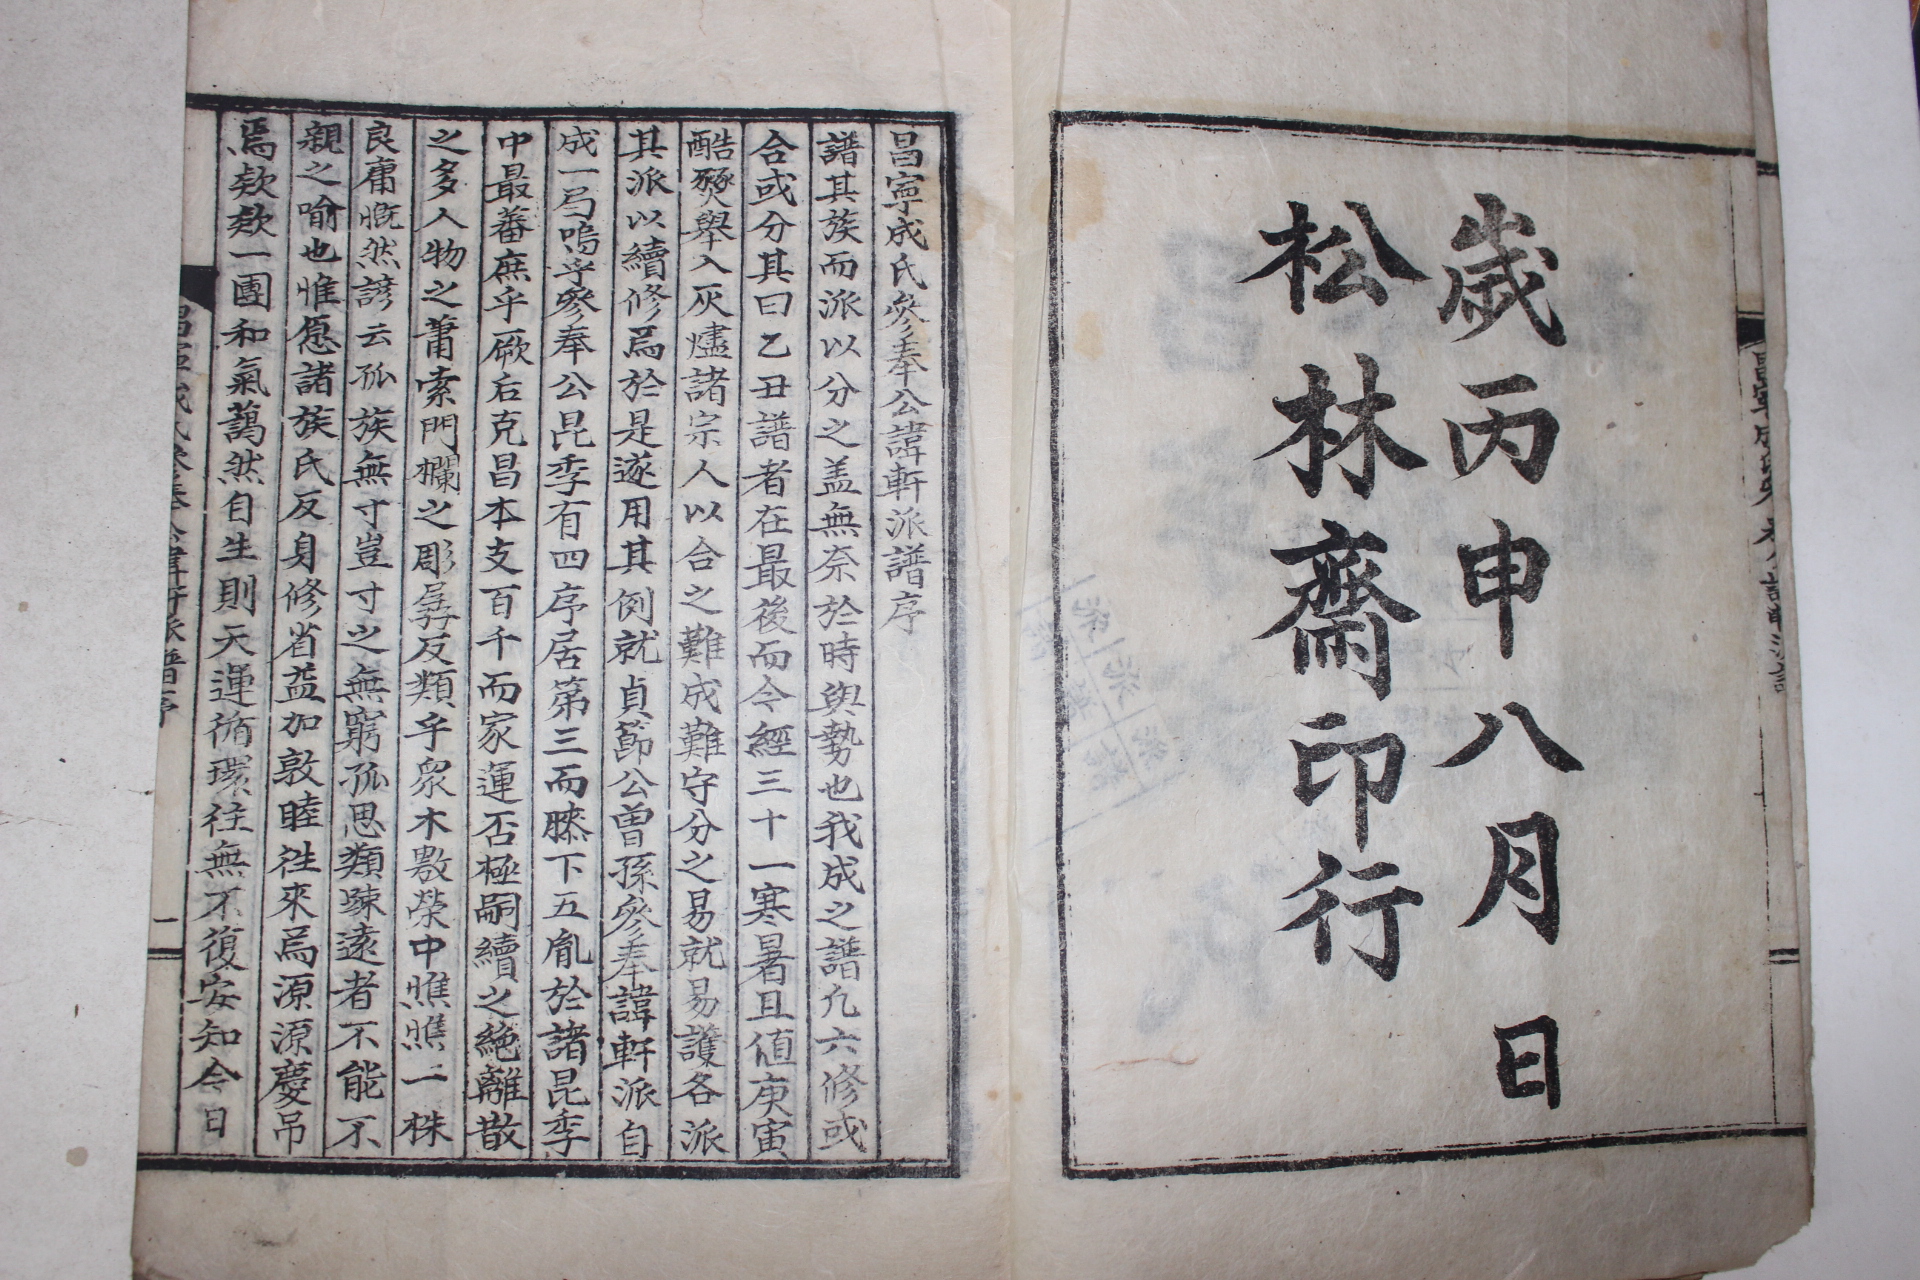 歲丙申八月 日
松林齋印行
昌寧成氏參奉公諱軒派譜序
譜其族而派以分之盖無奈於時與勢也我成之譜凡六修或
合或分其曰乙丑譜者在最後而今經三十一寒暑且値庚寅
酷燹舉入灰燼諸宗人以合之難成難守分之易就易護各派
其派以續修焉於是遂用其例就貞節公曾孫參奉諱軒派自
成一弓嗚乎參奉公昆季有四序居第三而膝下五胤於諸昆季
中最蕃庶乎厥后克昌本支百千而家運否極嗣續之絶離散
之多人物之蕭索門欄之彫孱反類乎衆木敷榮中憔憔一株
良庸慨然諺云孤族無寸豈寸之無窮孤思類踈遠者不能不
親之喻也惟愿諸族氏反身修省益加敦睦徃來焉源源慶吊
焉欸欸一團和氣藹然自生則天運循環徃無不復安知今日
昌寧成氏參奉公諱軒派譜序
一